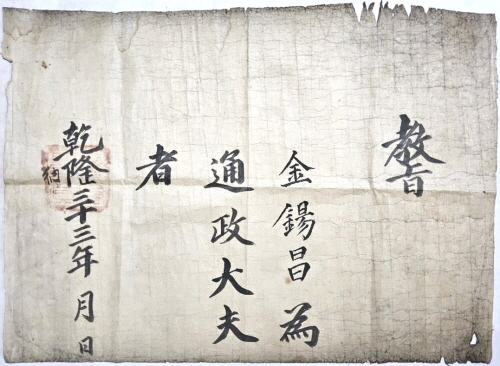 敎旨
金鍚昌為
通政大夫
者
乾隆三十三年 月 日